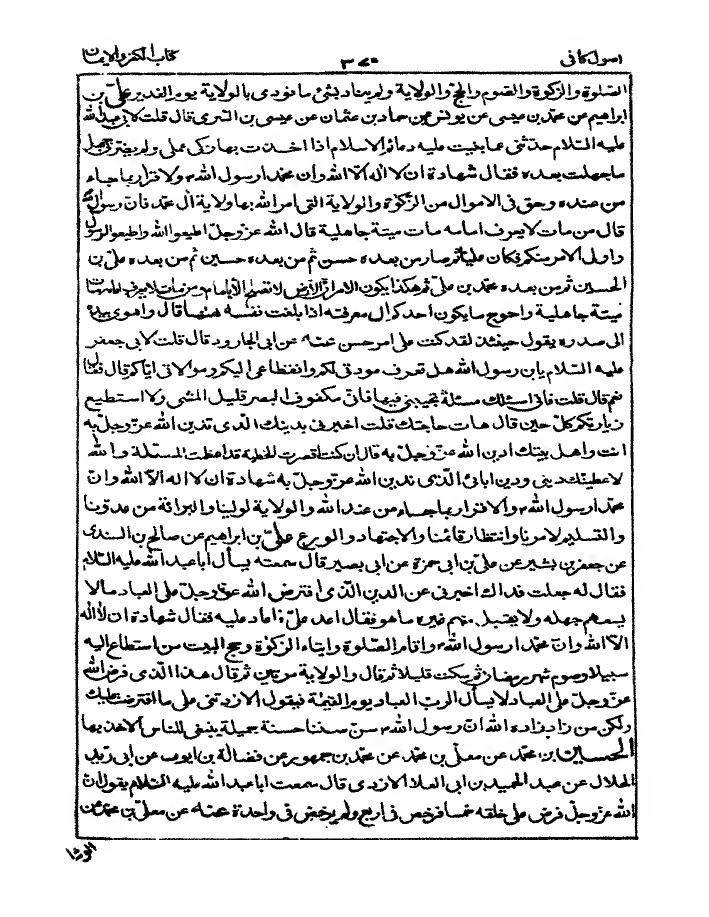 اصول كافى
٣٧٠
كتاب الكفر والايمان
الصلوة والزكوة والصوم والحج والولاية ولم يناد بشئ ما نودى بالولاية يوم الغدير على بن
ابراهيم عن محمد بن عيسى عن يونس عن حماد بن عثمان عن عيسى بن السرى قال قلت لابى عبد الله
عليه السلام حدثنى عما بنيت عليه دعائم الاسلام اذا اخذت بها زكى عملى ولم يضرنى جهل
ما جهلت بعده فقال شهادة ان لا اله الا الله وان محمدا رسول الله ص والاقرار بما جاء
من عنده وحق فى الاموال من الزكوة والولاية التى امر الله بها ولاية آل محمد فان رسول الله
قال من مات لا يعرف امامه مات ميتة جاهلية قال الله عز وجل اطيعوا الله واطيعوا الرسول
واولى الامر منكم فكان على ثم صار من بعده حسن ثم من بعده حسين ثم من بعده على بن
الحسين ثم من بعده محمد بن على ثم هكذا يكون الامر ان الارض لا تصلح الا بامام ومن مات لا يعرف امامه مات
ميتة جاهلية واحوج ما يكون احدكم الى معرفته اذا بلغت نفسه ههنا قال واهوى بيده
الى صدره يقول حينئذ لقد كنت على امر حسن عنه عن ابى الجارود قال قلت لابى جعفر
عليه السلام يابن رسول الله هل تعرف مودتى لكم وانقطاعى اليكم وموالاتى اياكم قال فقال
نعم قال قلت فانى اسئلك مسئلة تجيبنى فيها فانى مكفوف البصر قليل المشى ولا استطيع
زيارتكم كل حين قال هات حاجتك قلت اخبرنى بدينك الذى تدين الله عز وجل به
انت واهل بيتك لادين الله عز وجل به قال ان كنت اقصرت الخطبة فقد اعظمت المسئلة والله
لاعطينك دينى ودين ابائى الذى ندين الله عز وجل به شهادة ان لا اله الا الله وان
محمدا رسول الله ص والاقرار بما جاء من عند الله والولاية لولينا والبرائة من عدونا
والتسليم لامرنا وانتظار قائمنا والاجتهاد والورع على بن ابراهيم عن صالح بن السندى
عن جعفر بن بشير عن على بن ابى حمزة عن ابى بصير قال سمعته يسأل ابا عبد الله عليه السلام
فقال له جعلت فداك اخبرنى عن الدين الذى افترض الله عز وجل على العباد ما لا
يسعهم جهله ولا يقبل منهم غيره ما هو فقال اعد على فاعاد عليه فقال شهادة ان لا اله
الا الله وان محمدا رسول الله ص واقام الصلوة وايتاء الزكوة وحج البيت من استطاع اليه
سبيلا وصوم شهر رمضان ثم سكت قليلا ثم قال والولاية مرتين ثم قال هذا الذى فرض الله
عز وجل على العباد لا يسأل الرب العباد يوم القيمة فيقول الا زدتنى على ما افترضت عليك
ولكن من زاد زاده الله ان رسول الله ص سن سننا حسنة جميلة ينبغى للناس الاخذ بها
الحسين بن محمد عن معلى بن محمد عن محمد بن جمهور عن فضالة بن ايوب عن ابى زيد
الحلال عن عبد الحميد بن ابى العلا الازدى قال سمعت ابا عبد الله عليه السلام يقول ان
الله عز وجل فرض على خلقه خمسا فرخص فى اربع ولم يرخص فى واحدة عنه عن معلى بن محمد عن
الوشا